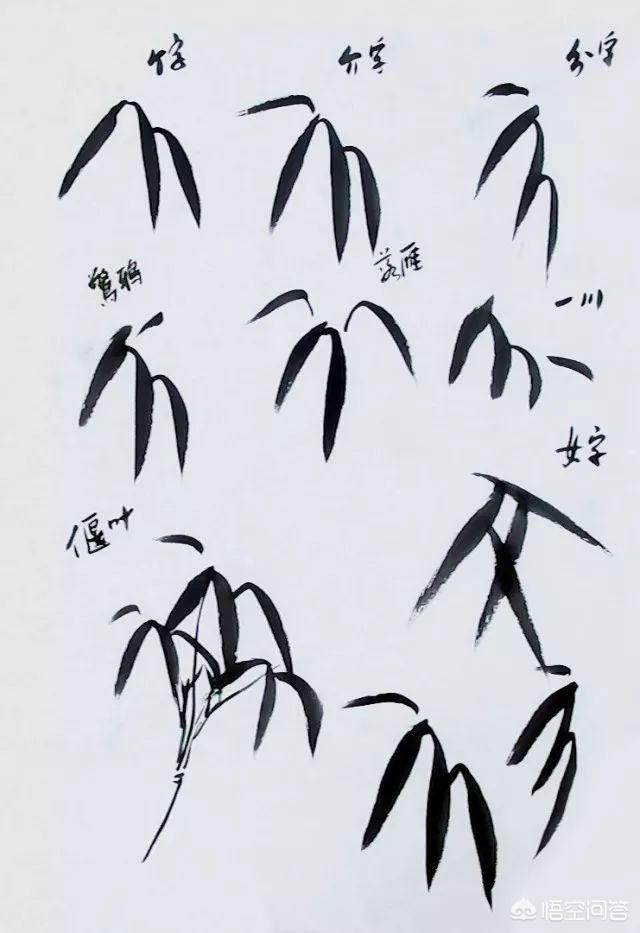 个字
介字
分字
驚鴉
落雁
一川
女字
偃叶
悟空问答